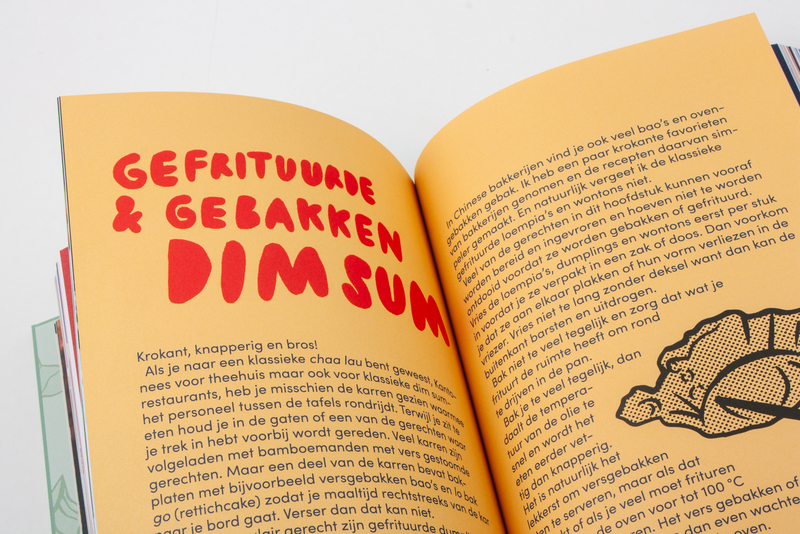 GEFRITUURDE
& GEBAKKEN
DIM SUM
Krokant, knapperig en bros!
Als je naar een klassieke chaa lau bent geweest, Kanto-
nees voor theehuis maar ook voor klassieke dim sum-
restaurants, heb je misschien de karren gezien waarmee
het personeel tussen de tafels rondrijdt. Terwijl je zit te
eten houd je in de gaten of een van de gerechten waar
je trek in hebt voorbij wordt gereden. Veel karren zijn
volgeladen met bamboemanden met vers gestoomde
gerechten. Maar een deel van de karren bevat bak-
platen met bijvoorbeeld versgebakken bao's en lo bak
go (rettichcake) zodat je maaltijd rechtstreeks van de kar
naar je bord gaat. Verser dan dat kan niet.
gerecht zijn gefrituurde
In Chinese bakkerijen vind je ook veel bao's en oven-
gebakken gebak. Ik heb een paar krokante favorieten
van bakkerijen genomen en de recepten daarvan sim-
peler gemaakt. En natuurlijk vergeet ik de klassieke
gefrituurde loempia's en wontons niet.
Veel van de gerechten in dit hoofdstuk kunnen vooraf
worden bereid en ingevroren en hoeven niet te worden
ontdooid voordat ze worden gebakken of gefrituurd.
Vries de loempia's, dumplings en wontons eerst per stuk
in voordat je ze verpakt in een zak of doos. Dan voorkom
je dat ze aan elkaar plakken of hun vorm verliezen in de
vriezer. Vries niet te lang zonder deksel want dan kan de
buitenkant barsten en uitdrogen.
Bak niet te veel tegelijk en zorg dat wat je
frituurt de ruimte heeft om rond
te drijven in de pan.
Bak je te veel tegelijk, dan
daalt de tempera-
tuur van de olie te
snel en wordt het
eten eerder vet-
tig dan knapperig.
Het is natuurlijk het
lekkerst om versgebakken
te serveren, maar als dat
of als je veel moet frituren
de oven voor tot 100 °C
Het vers gebakken of
dan even wachten